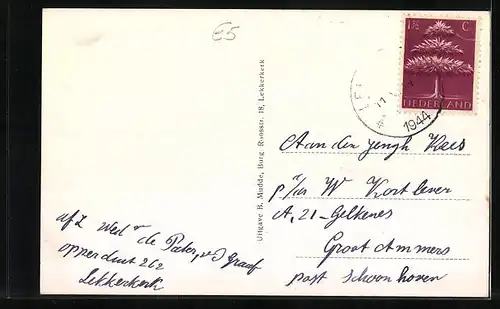 €5
1½ C
NEDERLAND
LE
11
1944
Uitgave B. Mudde, Burg. Roosstr. 18, Lekkerkerk
Aan den jongh Kees
p/a W Kortlever
A, 21 - Gelkenes
Groot Ammers
post schoonhoven
afz wed
de Pater, v d Graaf
opperduit 262
Lekkerkerk